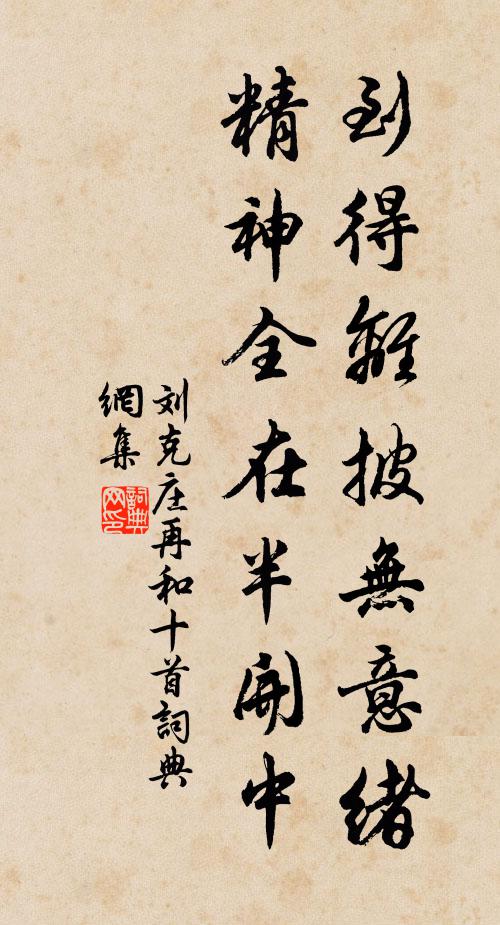 到得離披無意緒
精神全在半開中
刘克庄再和十首詞典
網集
詞典
网印